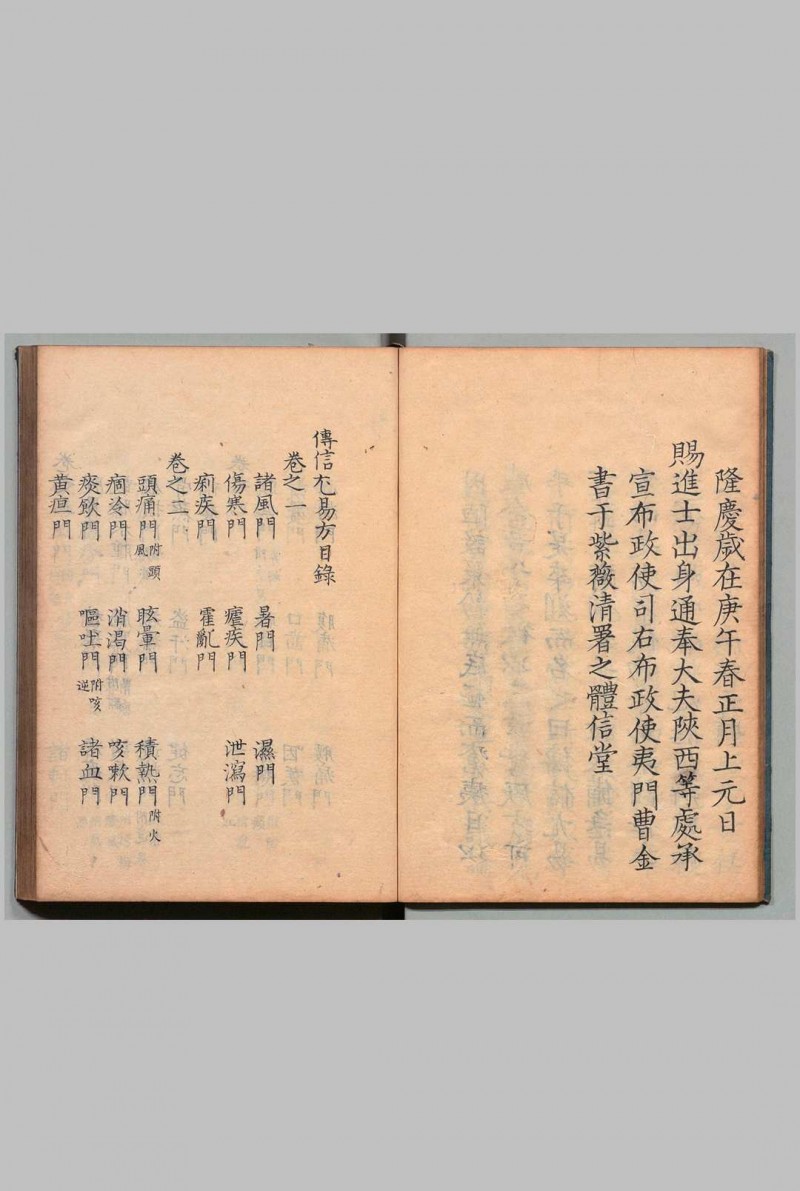 隆慶歲在庚午春正月上元日
賜進士出身通奉大夫陝西等處承
宣布政使司右布政使夷門曹金
書于紫薇清署之體信堂
傳信尤易方目錄
卷之一
諸風門 暑門 濕門
傷寒門 瘧疾門 泄瀉門
痢疾門 霍亂門
卷之二
頭痛門附頭風 眩暈門 積熱門附火
痼冷門 消渴門 咳嗽門
痰飲門 嘔吐門附咳逆 諸血門
黃疸門